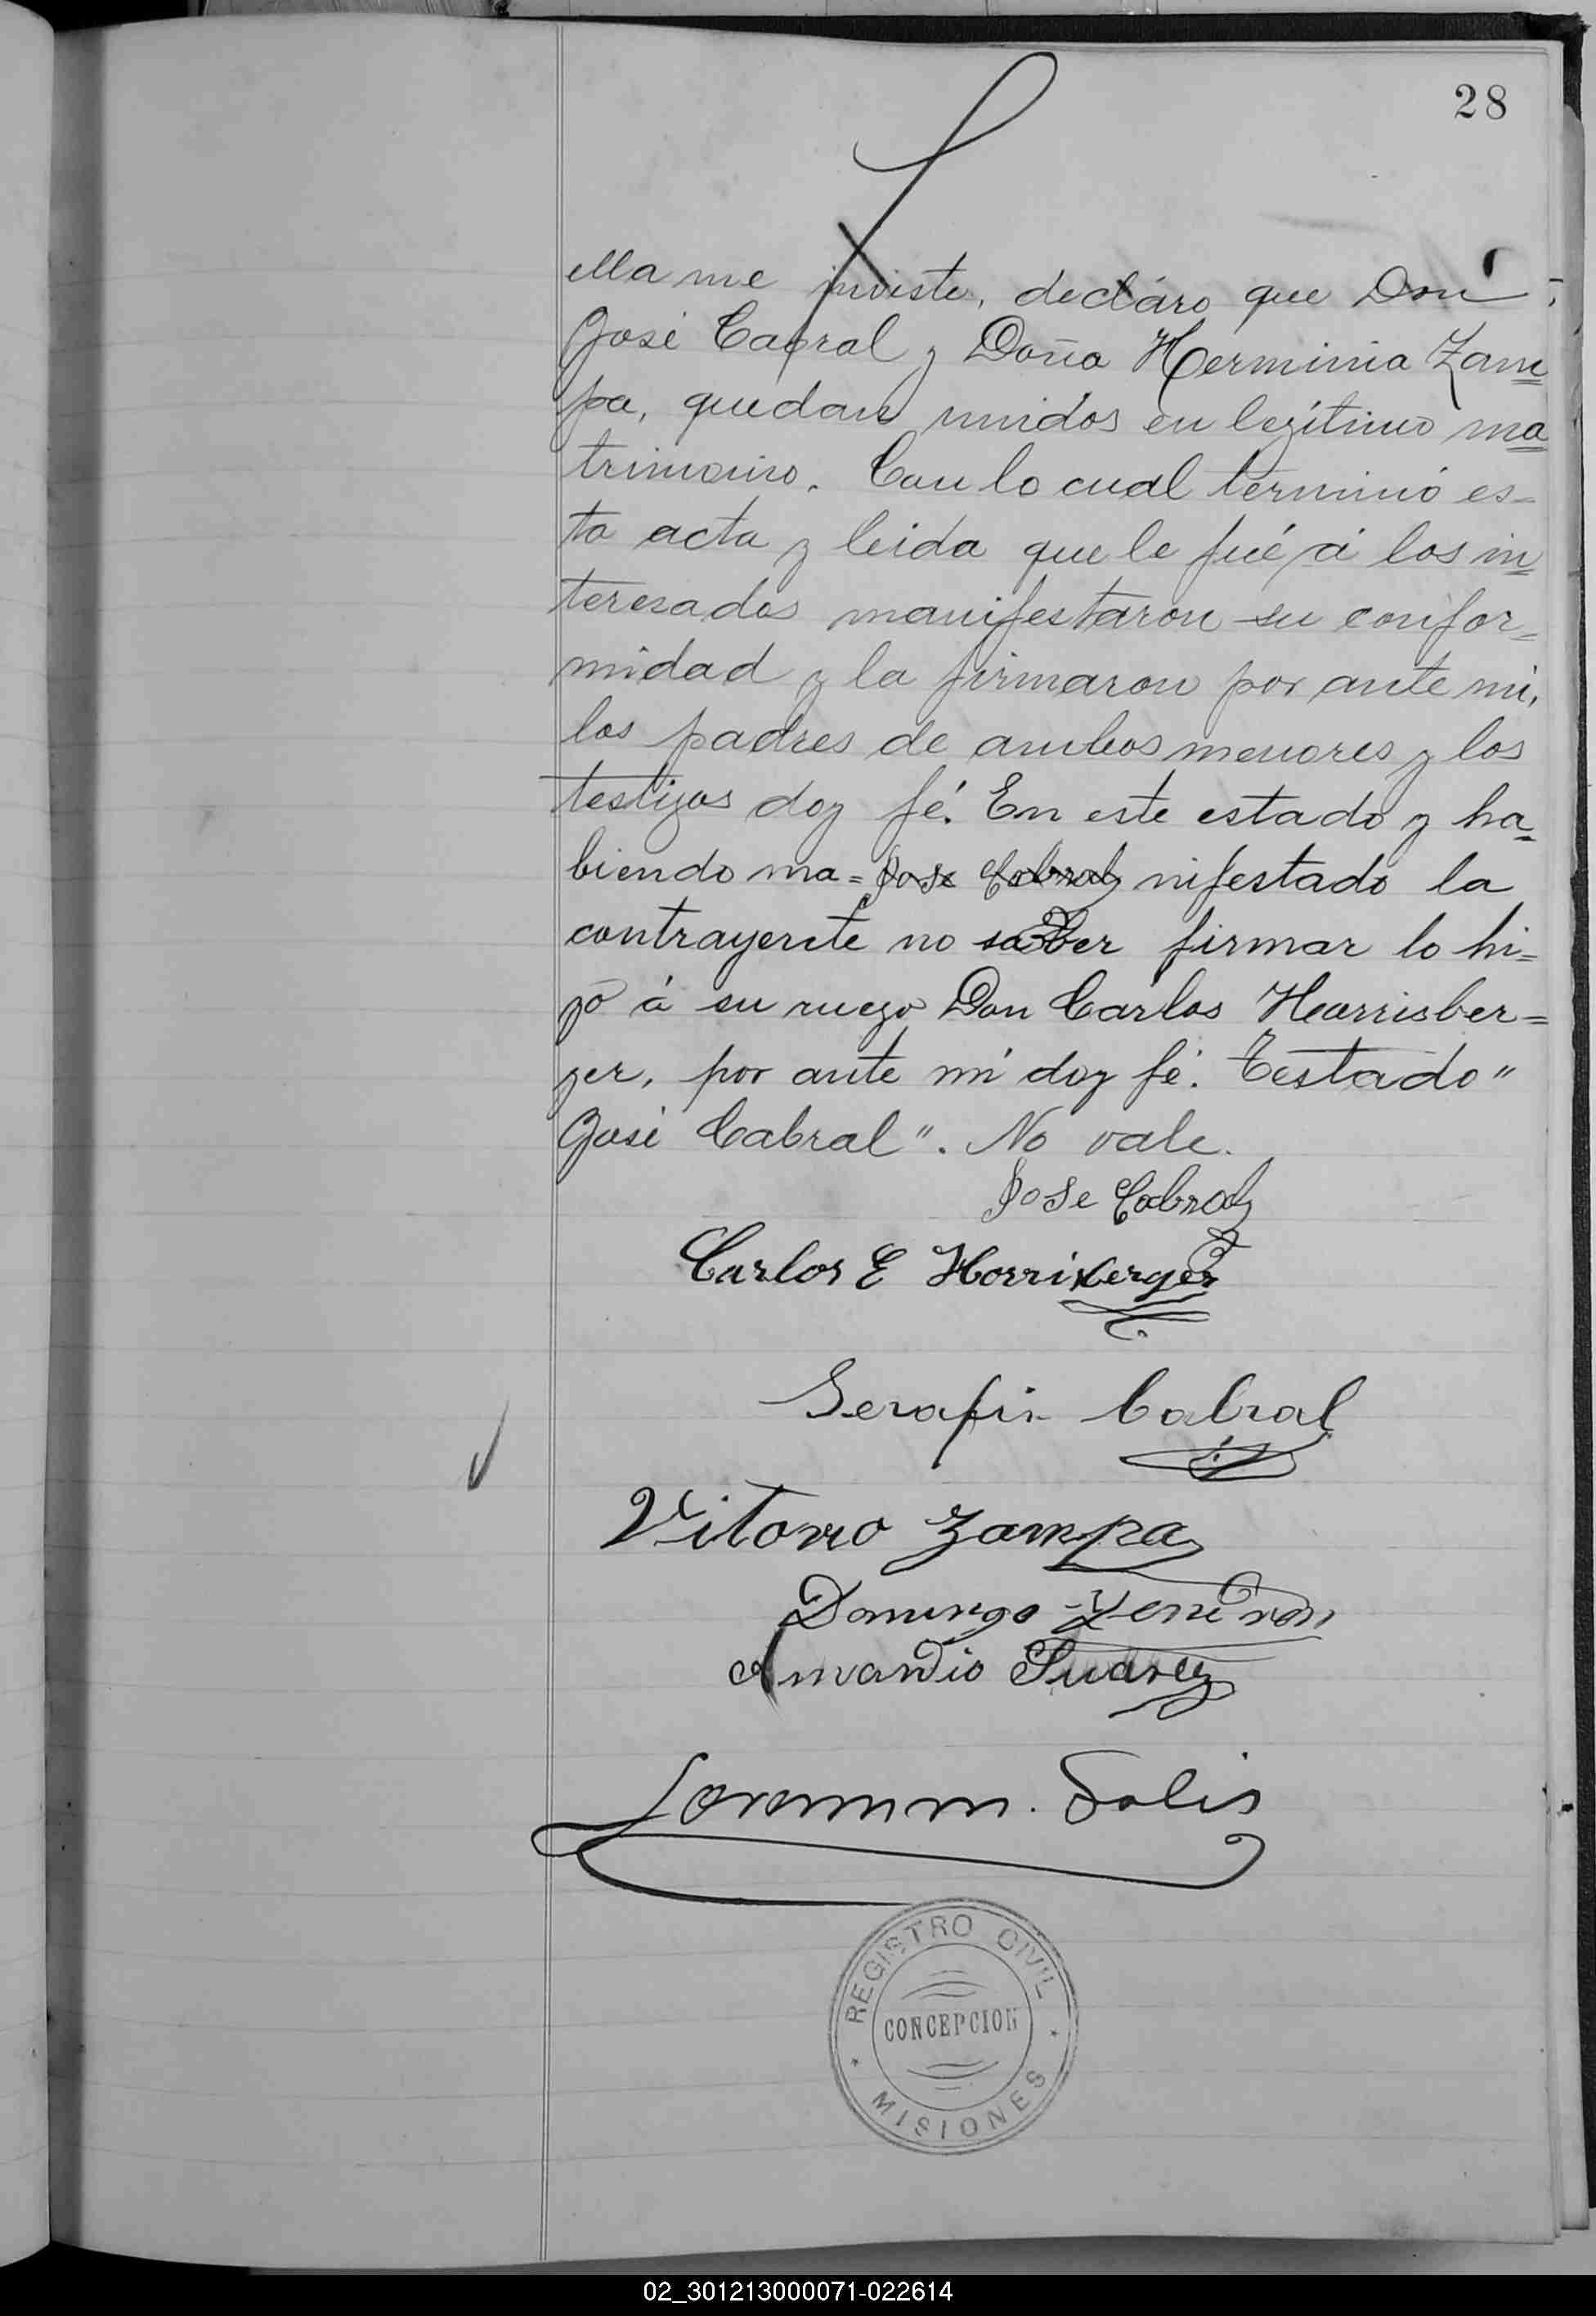 28
ella me inviste, decláro que Don
José Cabral y Doña Herminia Zam=
pa, quedan unidos en legítimo ma=
trimonio. Con lo cual terminó es=
ta acta y leida que le fué á los in=
teresados manifestaron su confor=
midad y la firmaron por ante mi,
los padres de ambos menores y los
testigos doy fé. En este estado y ha=
biendo ma= Jose Cabral nifestado la
contrayente no saber firmar lo hi=
zo á su ruego Don Carlos Harrisber=
ger, por ante mi doy fé. Testado "
José Cabral". No vale.
Jose Cabral
Carlos E Horrisberger
Serafin Cabral
Vitorio Zampa
Domingo
Amandio Suarez
Solis
REGISTRO CIVIL
CONCEPCION
* MISIONES *
02_301213000071-022614